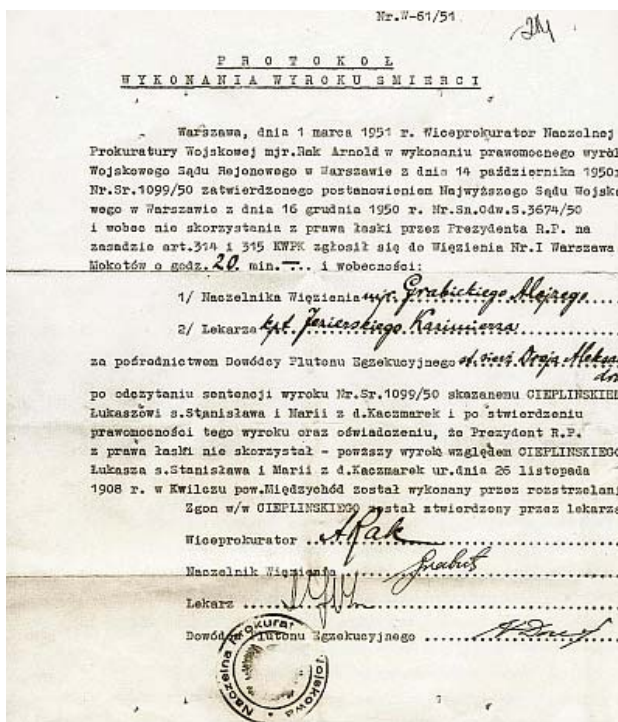 Nr.W-61/51
PROTOKOŁ
WYKONANIA WYROKU SMIERCI
Warszawa, dnia 1 marca 1951 r. Wiceprokurator Naczelnej
Prokuratury Wojskowej mjr.Rak Arnold w wykonaniu prawomocnego wyrok
Wojskowego Sądu Rejonowego w Warszawie z dnia 14 października 1950r
Nr.Sr.1099/50 zatwierdzonego postanowieniem Najwyższego Sądu Wojsko
wego w Warszawie z dnia 16 grudnia 1950 r. Nr.Sn.Odw.S.3674/50
i wobec nie skorzystania z prawa łaski przez Prezydenta R.P. na
zasadzie art.314 i 315 KWPK zgłosił się do Więzienia Nr.I Warszawa
Mokotów o godz. 20 min. —. i wobecności:
1/ Naczelnika Więzienia mjr. Grabickiego Alojzego
2/ Lekarza kpt. Jezierskiego Kazimierza
za pośrednictwem Dowódcy Plutonu Egzekucyjnego st. sierż Dreja Aleksan
dra
po odczytaniu sentencji wyroku Nr.Sr.1099/50 skazanemu CIEPLINSKIE
Łukaszowi s.Stanisława i Marii z d.Kaczmarek i po stwierdzeniu
prawomocności tego wyroku oraz oświadczeniu, że Prezydent R.P.
z prawa łaski nie skorzystał - powższy wyrok względem CIEPLINSKIEGO
Łukasza s.Stanisława i Marii z d.Kaczmarek ur.dnia 26 listopada
1908 r. w Kwilczu pow.Międzychód został wykonany przez rozstrzelani
Zgon w/w CIEPLINSKIEGO został stwierdzony przez lekarza
Wiceprokurator ARak
Naczelnik Więzienia
Lekarz
Dowódca Plutonu Egzekucyjnego
Naczelna Prokurat Wojskowa